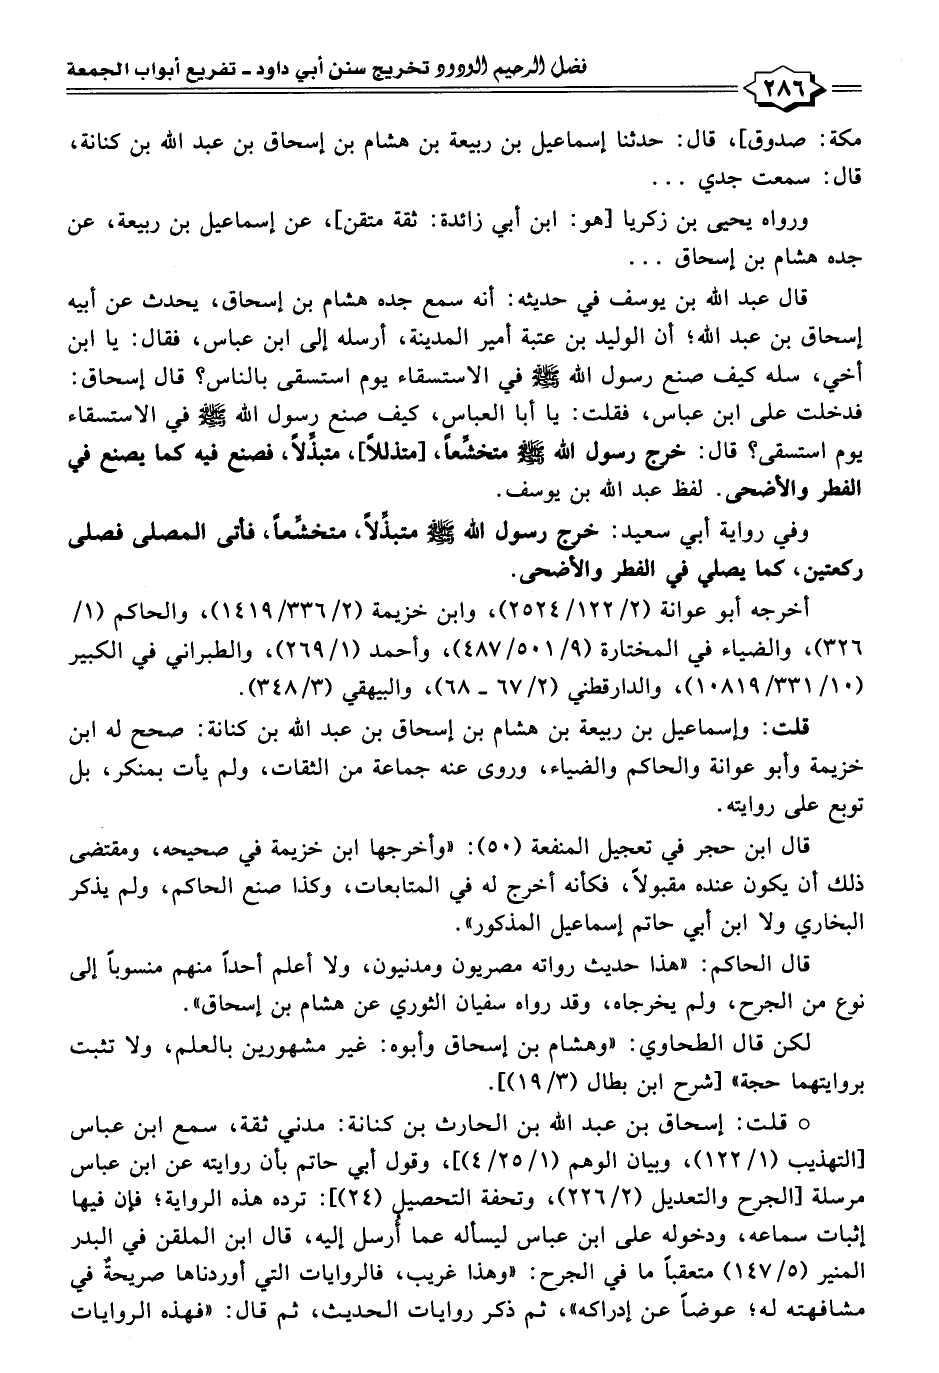 فضل الرحيم الودود تخريج سنن أبي داود ـ تفريع أبواب الجمعة
٢٨٦
مكة: صدوق]، قال: حدثنا إسماعيل بن ربيعة بن هشام بن إسحاق بن عبد الله بن كنانة،
قال: سمعت جدي ...
ورواه يحيى بن زكريا [هو: ابن أبي زائدة: ثقة متقن]، عن إسماعيل بن ربيعة، عن
جده هشام بن إسحاق ...
قال عبد الله بن يوسف في حديثه: أنه سمع جده هشام بن إسحاق، يحدث عن أبيه
إسحاق بن عبد الله؛ أن الوليد بن عتبة أمير المدينة، أرسله إلى ابن عباس، فقال: يا ابن
أخي، سله كيف صنع رسول الله ﷺ في الاستسقاء يوم استسقى بالناس؟ قال إسحاق:
فدخلت على ابن عباس، فقلت: يا أبا العباس، كيف صنع رسول الله ﷺ في الاستسقاء
يوم استسقى؟ قال: خرج رسول الله ﷺ متخشِّعاً، [متذللاً]، متبذِّلاً، فصنع فيه كما يصنع في
الفطر والأضحى. لفظ عبد الله بن يوسف.
وفي رواية أبي سعيد: خرج رسول الله ﷺ متبذِّلاً، متخشِّعاً، فأتى المصلى فصلى
ركعتين، كما يصلي في الفطر والأضحى.
أخرجه أبو عوانة (٢/ ١٢٢/ ٢٥٢٤)، وابن خزيمة (٢/ ٣٣٦/ ١٤١٩)، والحاكم (١/
٣٢٦)، والضياء في المختارة (٩/ ٥٠١/ ٤٨٧)، وأحمد (١/ ٢٦٩)، والطبراني في الكبير
(١٠/ ٣٣١/ ١٠٨١٩)، والدارقطني (٢/ ٦٧ ـ ٦٨)، والبيهقي (٣/ ٣٤٨).
قلت: وإسماعيل بن ربيعة بن هشام بن إسحاق بن عبد الله بن كنانة: صحح له ابن
خزيمة وأبو عوانة والحاكم والضياء، وروى عنه جماعة من الثقات، ولم يأت بمنكر، بل
توبع على روايته.
قال ابن حجر في تعجيل المنفعة (٥٠): «وأخرجها ابن خزيمة في صحيحه، ومقتضى
ذلك أن يكون عنده مقبولاً، فكأنه أخرج له في المتابعات، وكذا صنع الحاكم، ولم يذكر
البخاري ولا ابن أبي حاتم إسماعيل المذكور».
قال الحاكم: «هذا حديث رواته مصريون ومدنيون، ولا أعلم أحداً منهم منسوباً إلى
نوع من الجرح، ولم يخرجاه، وقد رواه سفيان الثوري عن هشام بن إسحاق».
لكن قال الطحاوي: «وهشام بن إسحاق وأبوه: غير مشهورين بالعلم، ولا تثبت
بروايتهما حجة» [شرح ابن بطال (٣/ ١٩)].
○ قلت: إسحاق بن عبد الله بن الحارث بن كنانة: مدني ثقة، سمع ابن عباس
[التهذيب (١/ ١٢٢)، وبيان الوهم (١/ ٢٥/ ٤)]، وقول أبي حاتم بأن روايته عن ابن عباس
مرسلة [الجرح والتعديل (٢/ ٢٢٦)، وتحفة التحصيل (٢٤)]: ترده هذه الرواية؛ فإن فيها
إثبات سماعه، ودخوله على ابن عباس ليسأله عما أُرسل إليه، قال ابن الملقن في البدر
المنير (٥/ ١٤٧) متعقباً ما في الجرح: «وهذا غريب، فالروايات التي أوردناها صريحةٌ في
مشافهته له؛ عوضاً عن إدراكه»، ثم ذكر روايات الحديث، ثم قال: «فهذه الروايات